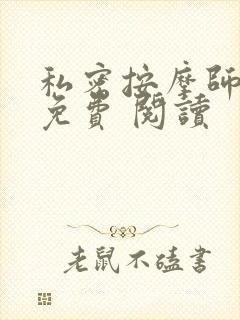 私密按摩師
免費閱讀
老鼠不嗑書